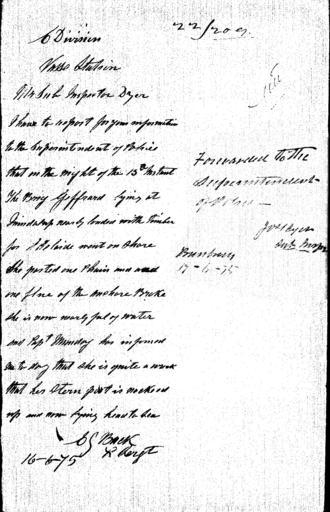 22/209
C Division
Vasse Station
Mr Sub Inspector Dyer
I have to report for your information
to the Superintendent of Police
that on the night of the 13th Instant
The Brig Geffrard lying at
Quindalup nearly loaded with timber
for Adelaide went on shore
She parted one Chain and
one flue of the anchor Broke
she is now nearly full of water
and Capt Munday has informed
me to day that she is quite a wreck
that her Stern post is knocked
up and now lying head to sea
C G Back
L Sergt
16-6-75
Forwarded to the
Superintendent
of Police
Sub Inspr
Bunbury
17-6-75